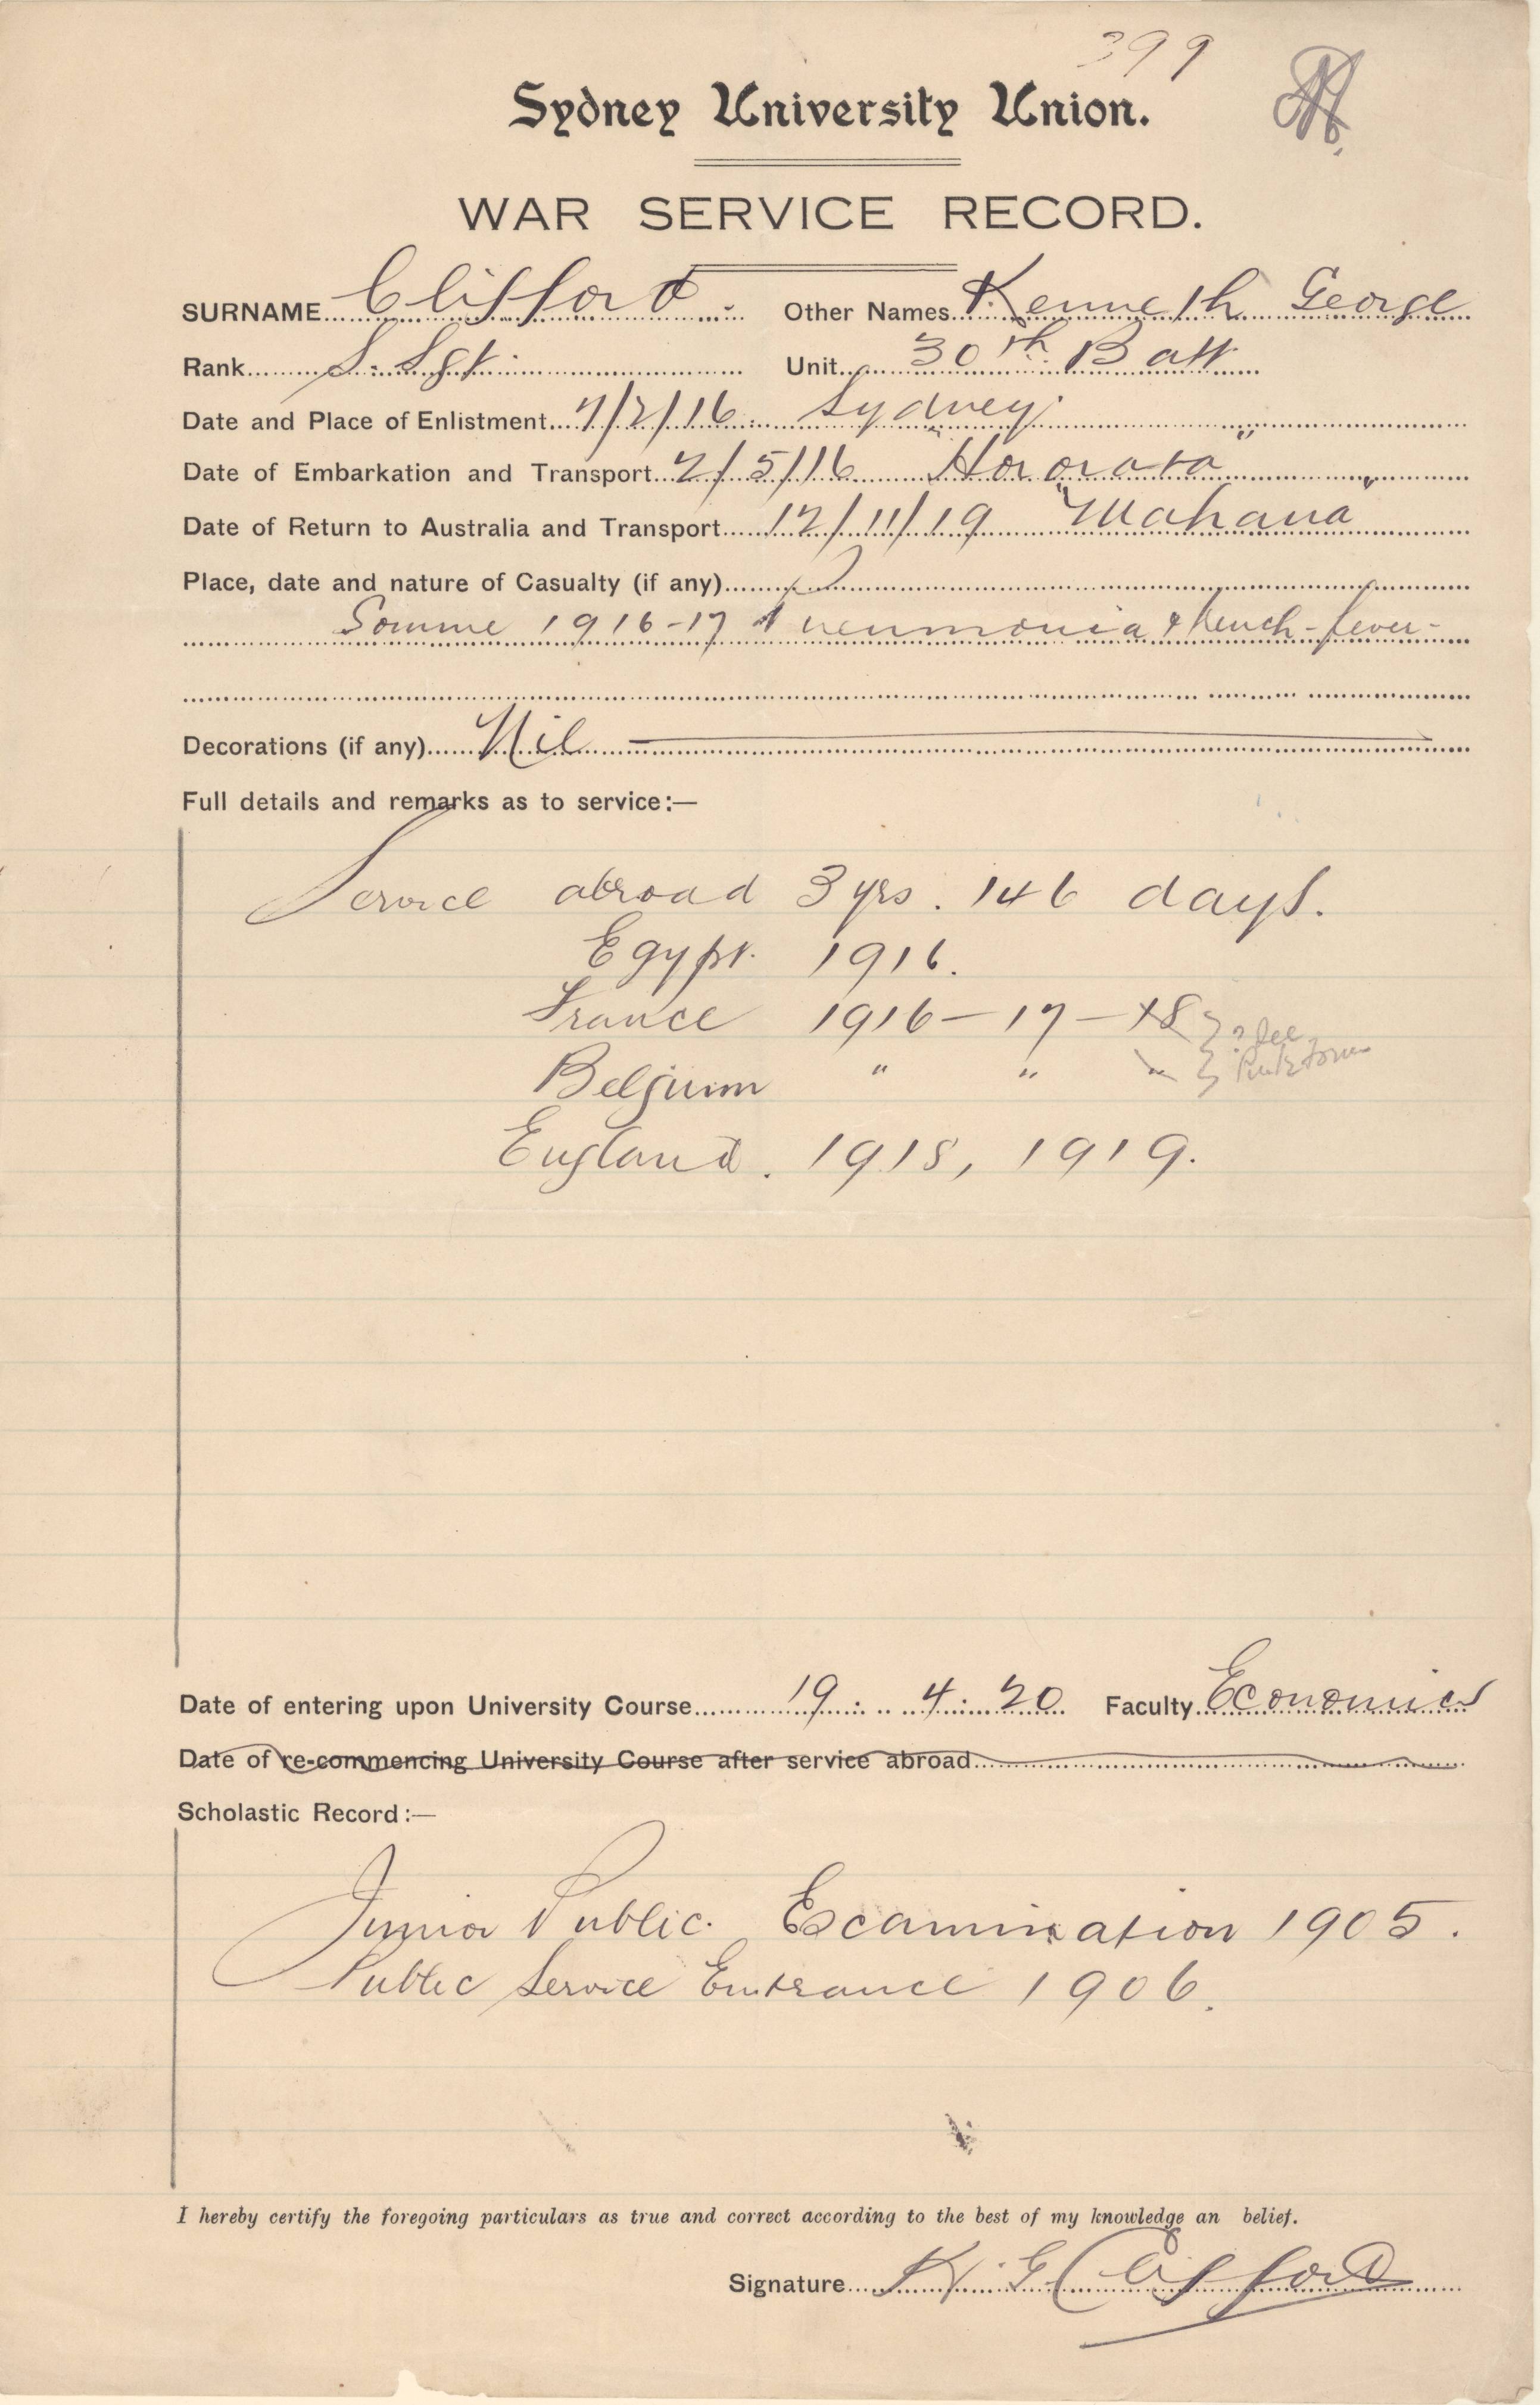 399
Sydney University Union.
WAR SERVICE RECORD.
SURNAME Clifford. Other Names Kenneth George
Rank S. Sgt. Unit 30th Batt
Date and Place of Enlistment 7/2/16. Sydney.
Date of Embarkation and Transport 2/5/16 "Hororata"
Date of Return to Australia and Transport 12/11/19 "Mahana"
Place, date and nature of Casualty (if any)
Somme 1916-17 Pneumonia & trench-fever-
Decorations (if any) Nil
Full details and remarks as to service:—
Service abroad 3 yrs. 146 days.
Egypt. 1916.
France 1916-17-18
Belgium " " "
England. 1918, 1919.
Date of entering upon University Course 19. 4. 20 Faculty Economics
Date of re-commencing University Course after service abroad
Scholastic Record:—
Junior Public. Examination 1905.
Public Service Entrance 1906.
I hereby certify the foregoing particulars as true and correct according to the best of my knowledge an belief.
Signature K. G. Clifford